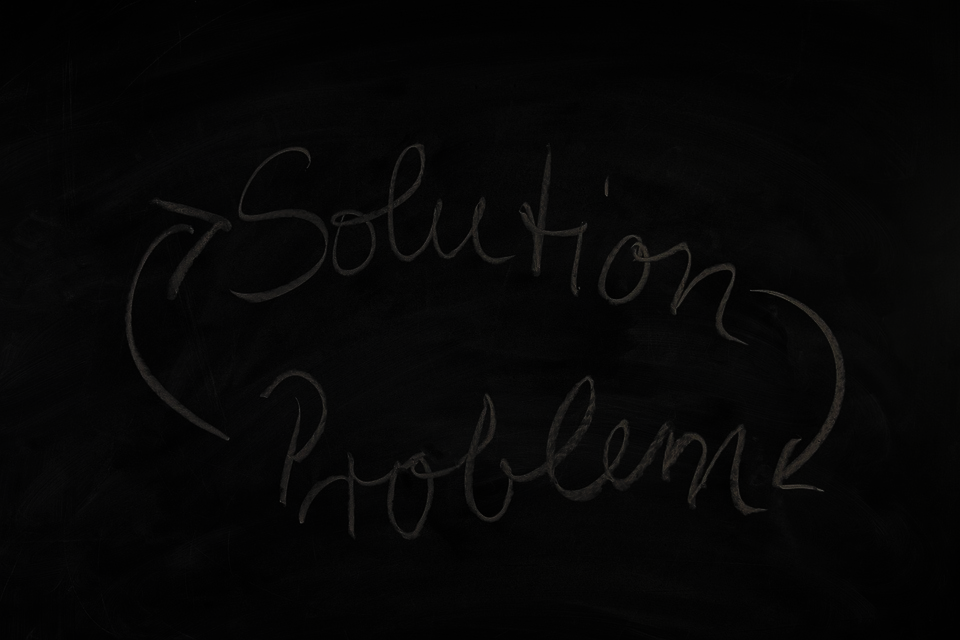 Solution
Problem